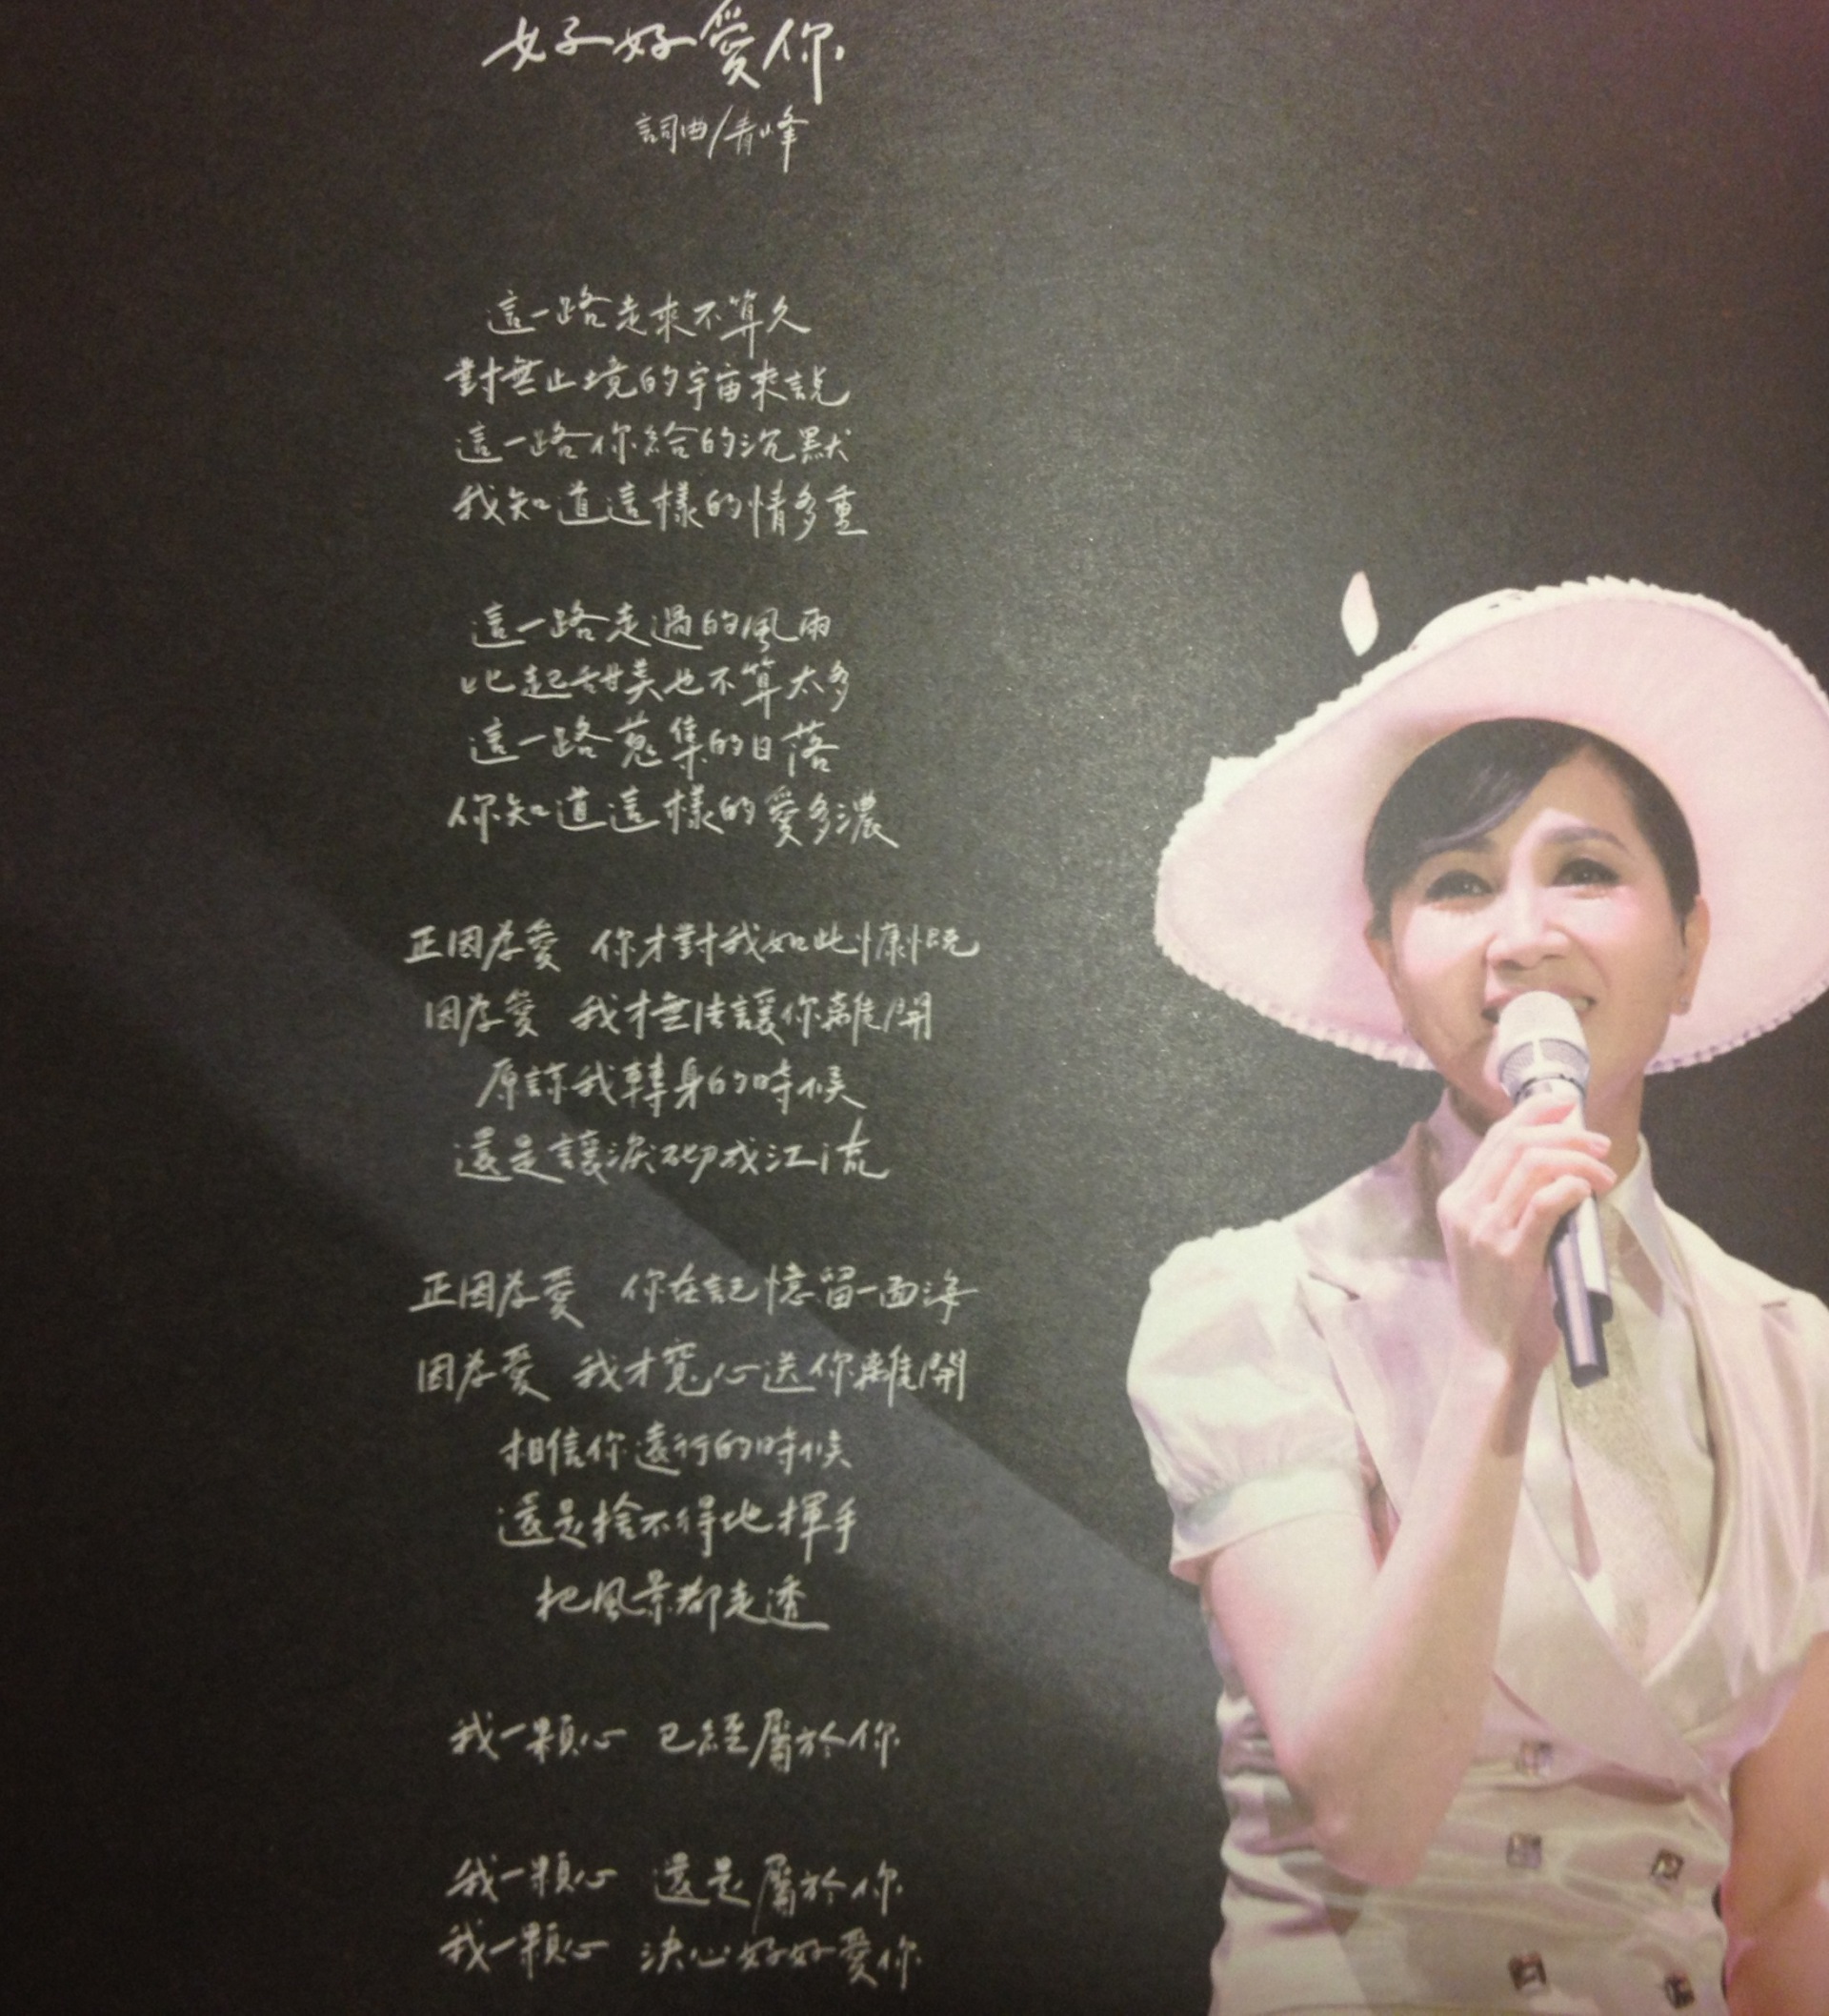 好好愛你
詞曲/青峰
這一路走來不算久
對無止境的宇宙來說
這一路你給的沉默
我知道這樣的情多重
這一路走過的風雨
比起甜美也不算太多
這一路蒐集的日落
你知道這樣的愛多濃
正因為愛 你才對我如此慷慨
因為愛 我才無法讓你離開
原諒我轉身的時候
還是讓淚砌成江流
正因為愛 你在記憶留一面海
因為愛 我才寬心送你離開
相信你遠行的時候
還是捨不得地揮手
把風景都走透
我一顆心 已經屬於你
我一顆心 還是屬於你
我一顆心 決心好好愛你